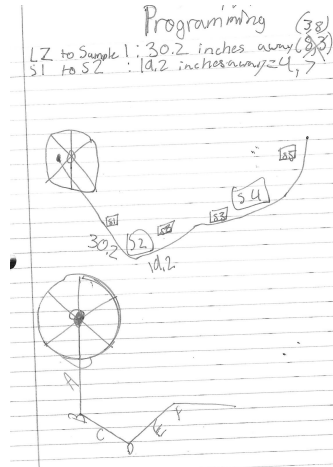 Programming
(3,8)
LZ to Sample 1: 30.2 inches away (8,3)
S1 to S2 : 19.2 inches away = 4, 7
S5
S4
S1
S3
30.2
S2
19.2
A
B
C
D
E
F